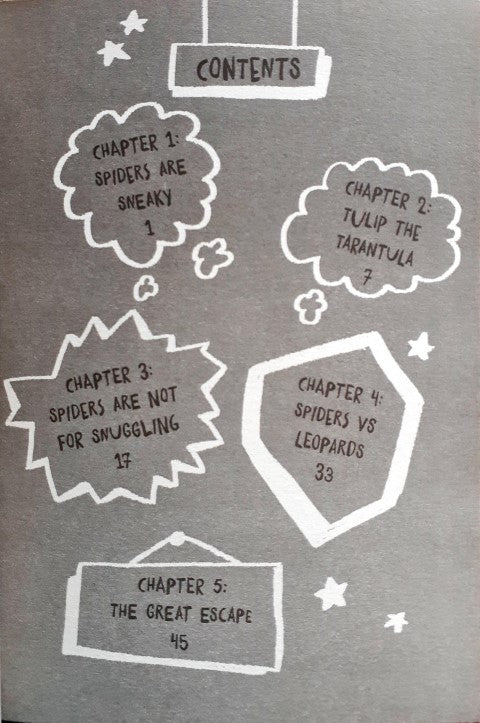 CONTENTS
CHAPTER 1:
SPIDERS ARE
SNEAKY
1
CHAPTER 2:
TULIP THE
TARANTULA
7
CHAPTER 3:
SPIDERS ARE NOT
FOR SNUGGLING
17
CHAPTER 4:
SPIDERS VS
LEOPARDS
33
CHAPTER 5:
THE GREAT ESCAPE
45